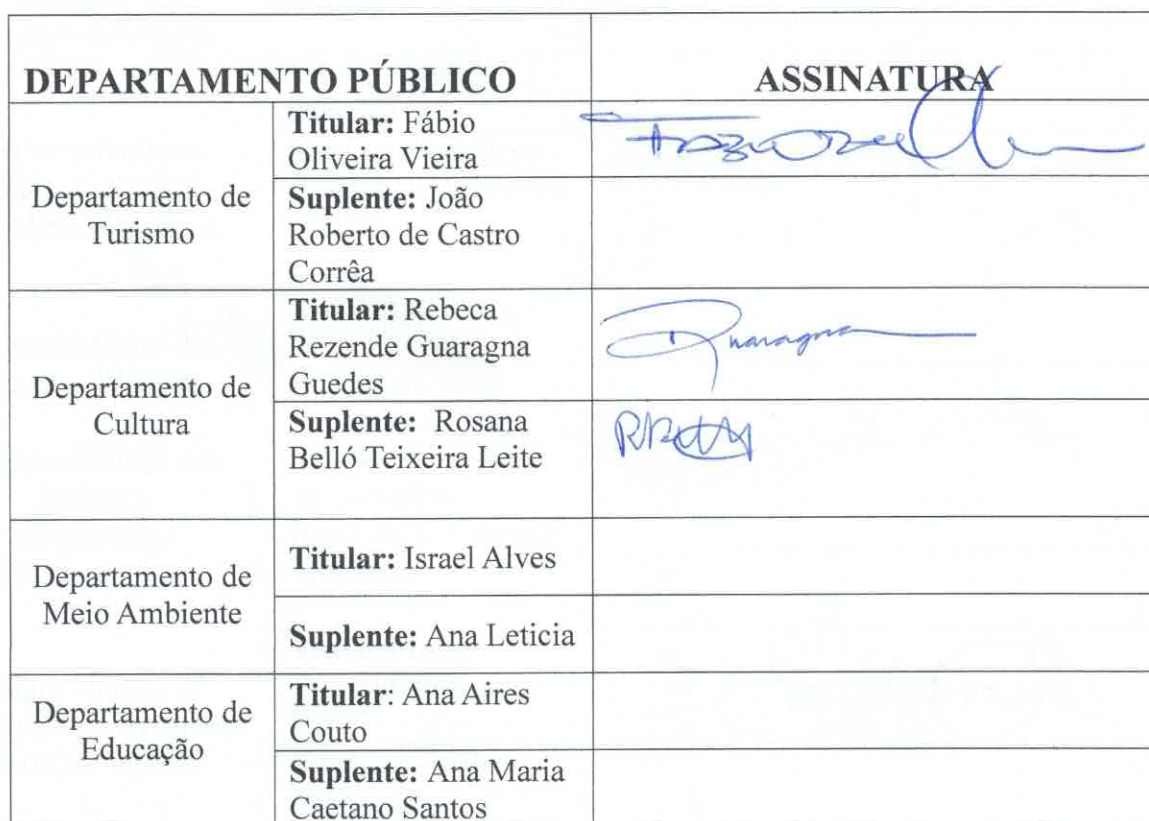 DEPARTAMENTO PÚBLICO
ASSINATURA
Departamento de
Turismo
Titular: Fábio
Oliveira Vieira
Suplente: João
Roberto de Castro
Corrêa
Departamento de
Cultura
Titular: Rebeca
Rezende Guaragna
Guedes
Guaragna
Suplente: Rosana
Belló Teixeira Leite
Departamento de
Meio Ambiente
Titular: Israel Alves
Suplente: Ana Leticia
Departamento de
Educação
Titular: Ana Aires
Couto
Suplente: Ana Maria
Caetano Santos